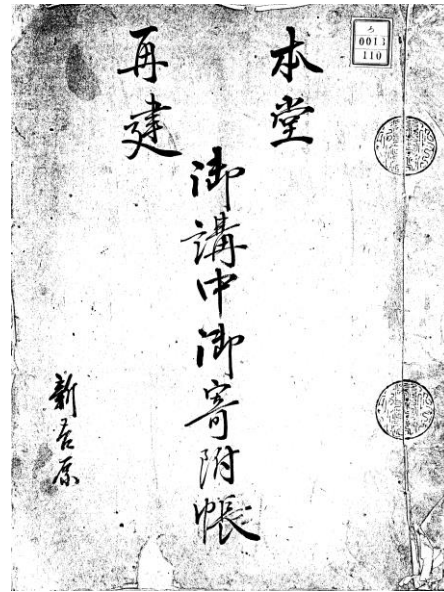 ろ
0013
110
本堂
再建
御講中御寄附帳
新吉原